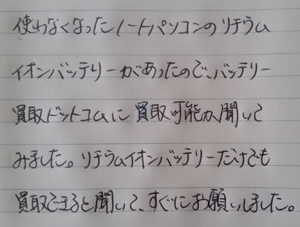 使わなくなったノートパソコンのリチウム
イオンバッテリーがあったので、バッテリー
買取ドットコムに買取可能か聞いて
みました。リチウムイオンバッテリーだけでも
買取できると聞いて、すぐにお願いしました。